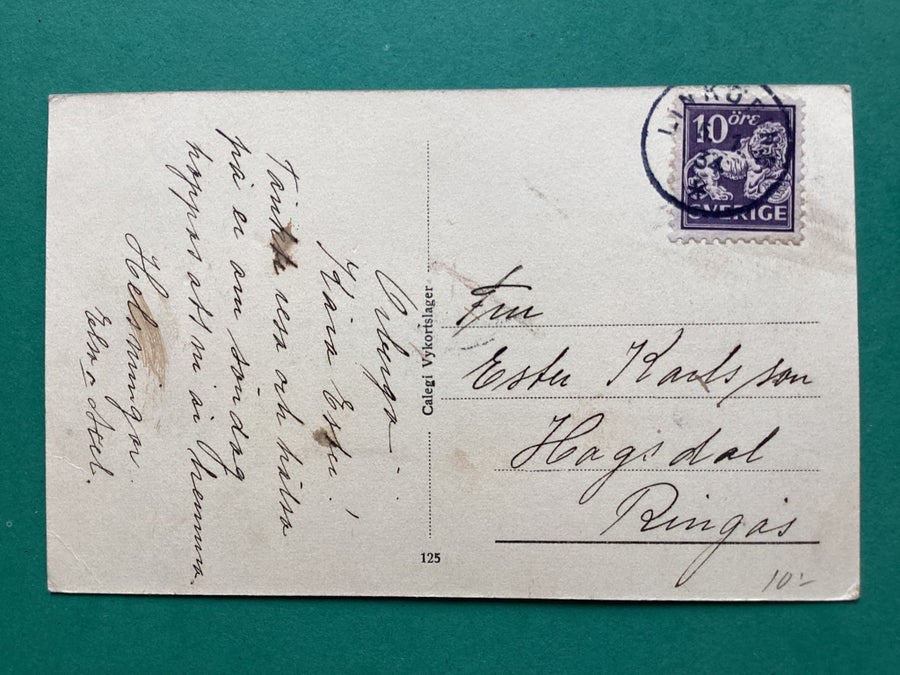 Kära Ester!
Tänkte resa och hälsa
på er om söndag
hoppas att ni är hemma.
Hälsningar.
Elsa o Axel.
Calegi Vykortslager
125
LINKÖP
10 öre
SVERIGE
Fru
Ester Karlsson
Hagsdal
Ringås
10:-